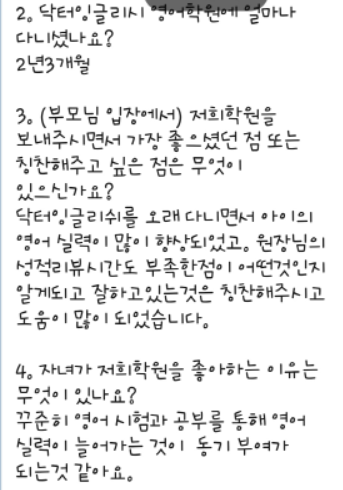 2. 닥터잉글리시 영어학원에 얼마나
다니셨나요?
2년3개월
3. (부모님 입장에서) 저희학원을
보내주시면서 가장 좋으셨던 점 또는
칭찬해주고 싶은 점은 무엇이
있으신가요?
닥터잉글리쉬를 오래 다니면서 아이의
영어 실력이 많이 향상되었고, 원장님의
성적리뷰시간도 부족한점이 어떤것인지
알게되고 잘하고있는것은 칭찬해주시고
도움이 많이 되었습니다.
4. 자녀가 저희학원을 좋아하는 이유는
무엇이 있나요?
꾸준히 영어 시험과 공부를 통해 영어
실력이 늘어가는 것이 동기 부여가
되는것 같아요.